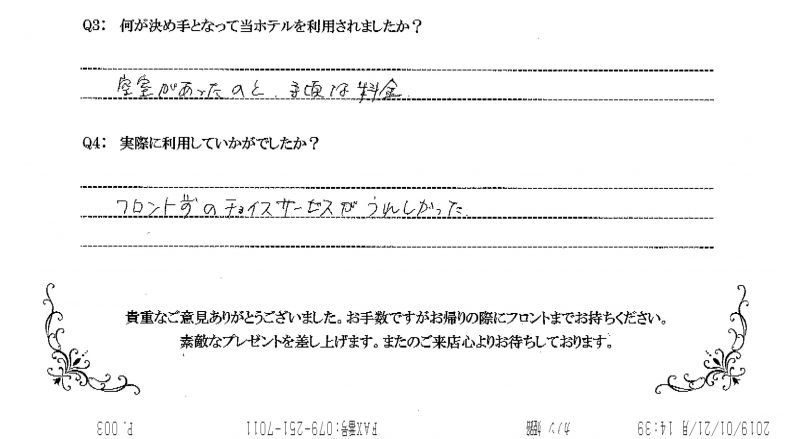 Q3： 何が決め手となって当ホテルを利用されましたか？
空室があったのと、手頃な料金。
Q4： 実際に利用していかがでしたか？
フロント前のチョイスサービスがうれしかった。
貴重なご意見ありがとうございました。お手数ですがお帰りの際にフロントまでお持ちください。
素敵なプレゼントを差し上げます。またのご来店心よりお待ちしております。
2019/01/21/月 14:39 カノン FAX番号:079-251-7011 P. 003